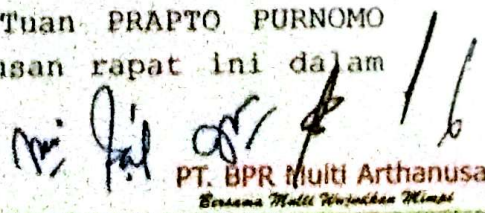 Tuan PRAPTO PURNOMO
usan rapat ini dalam
PT. BPR Multi Arthanusa
Bersama Multi Wujudkan Mimpi